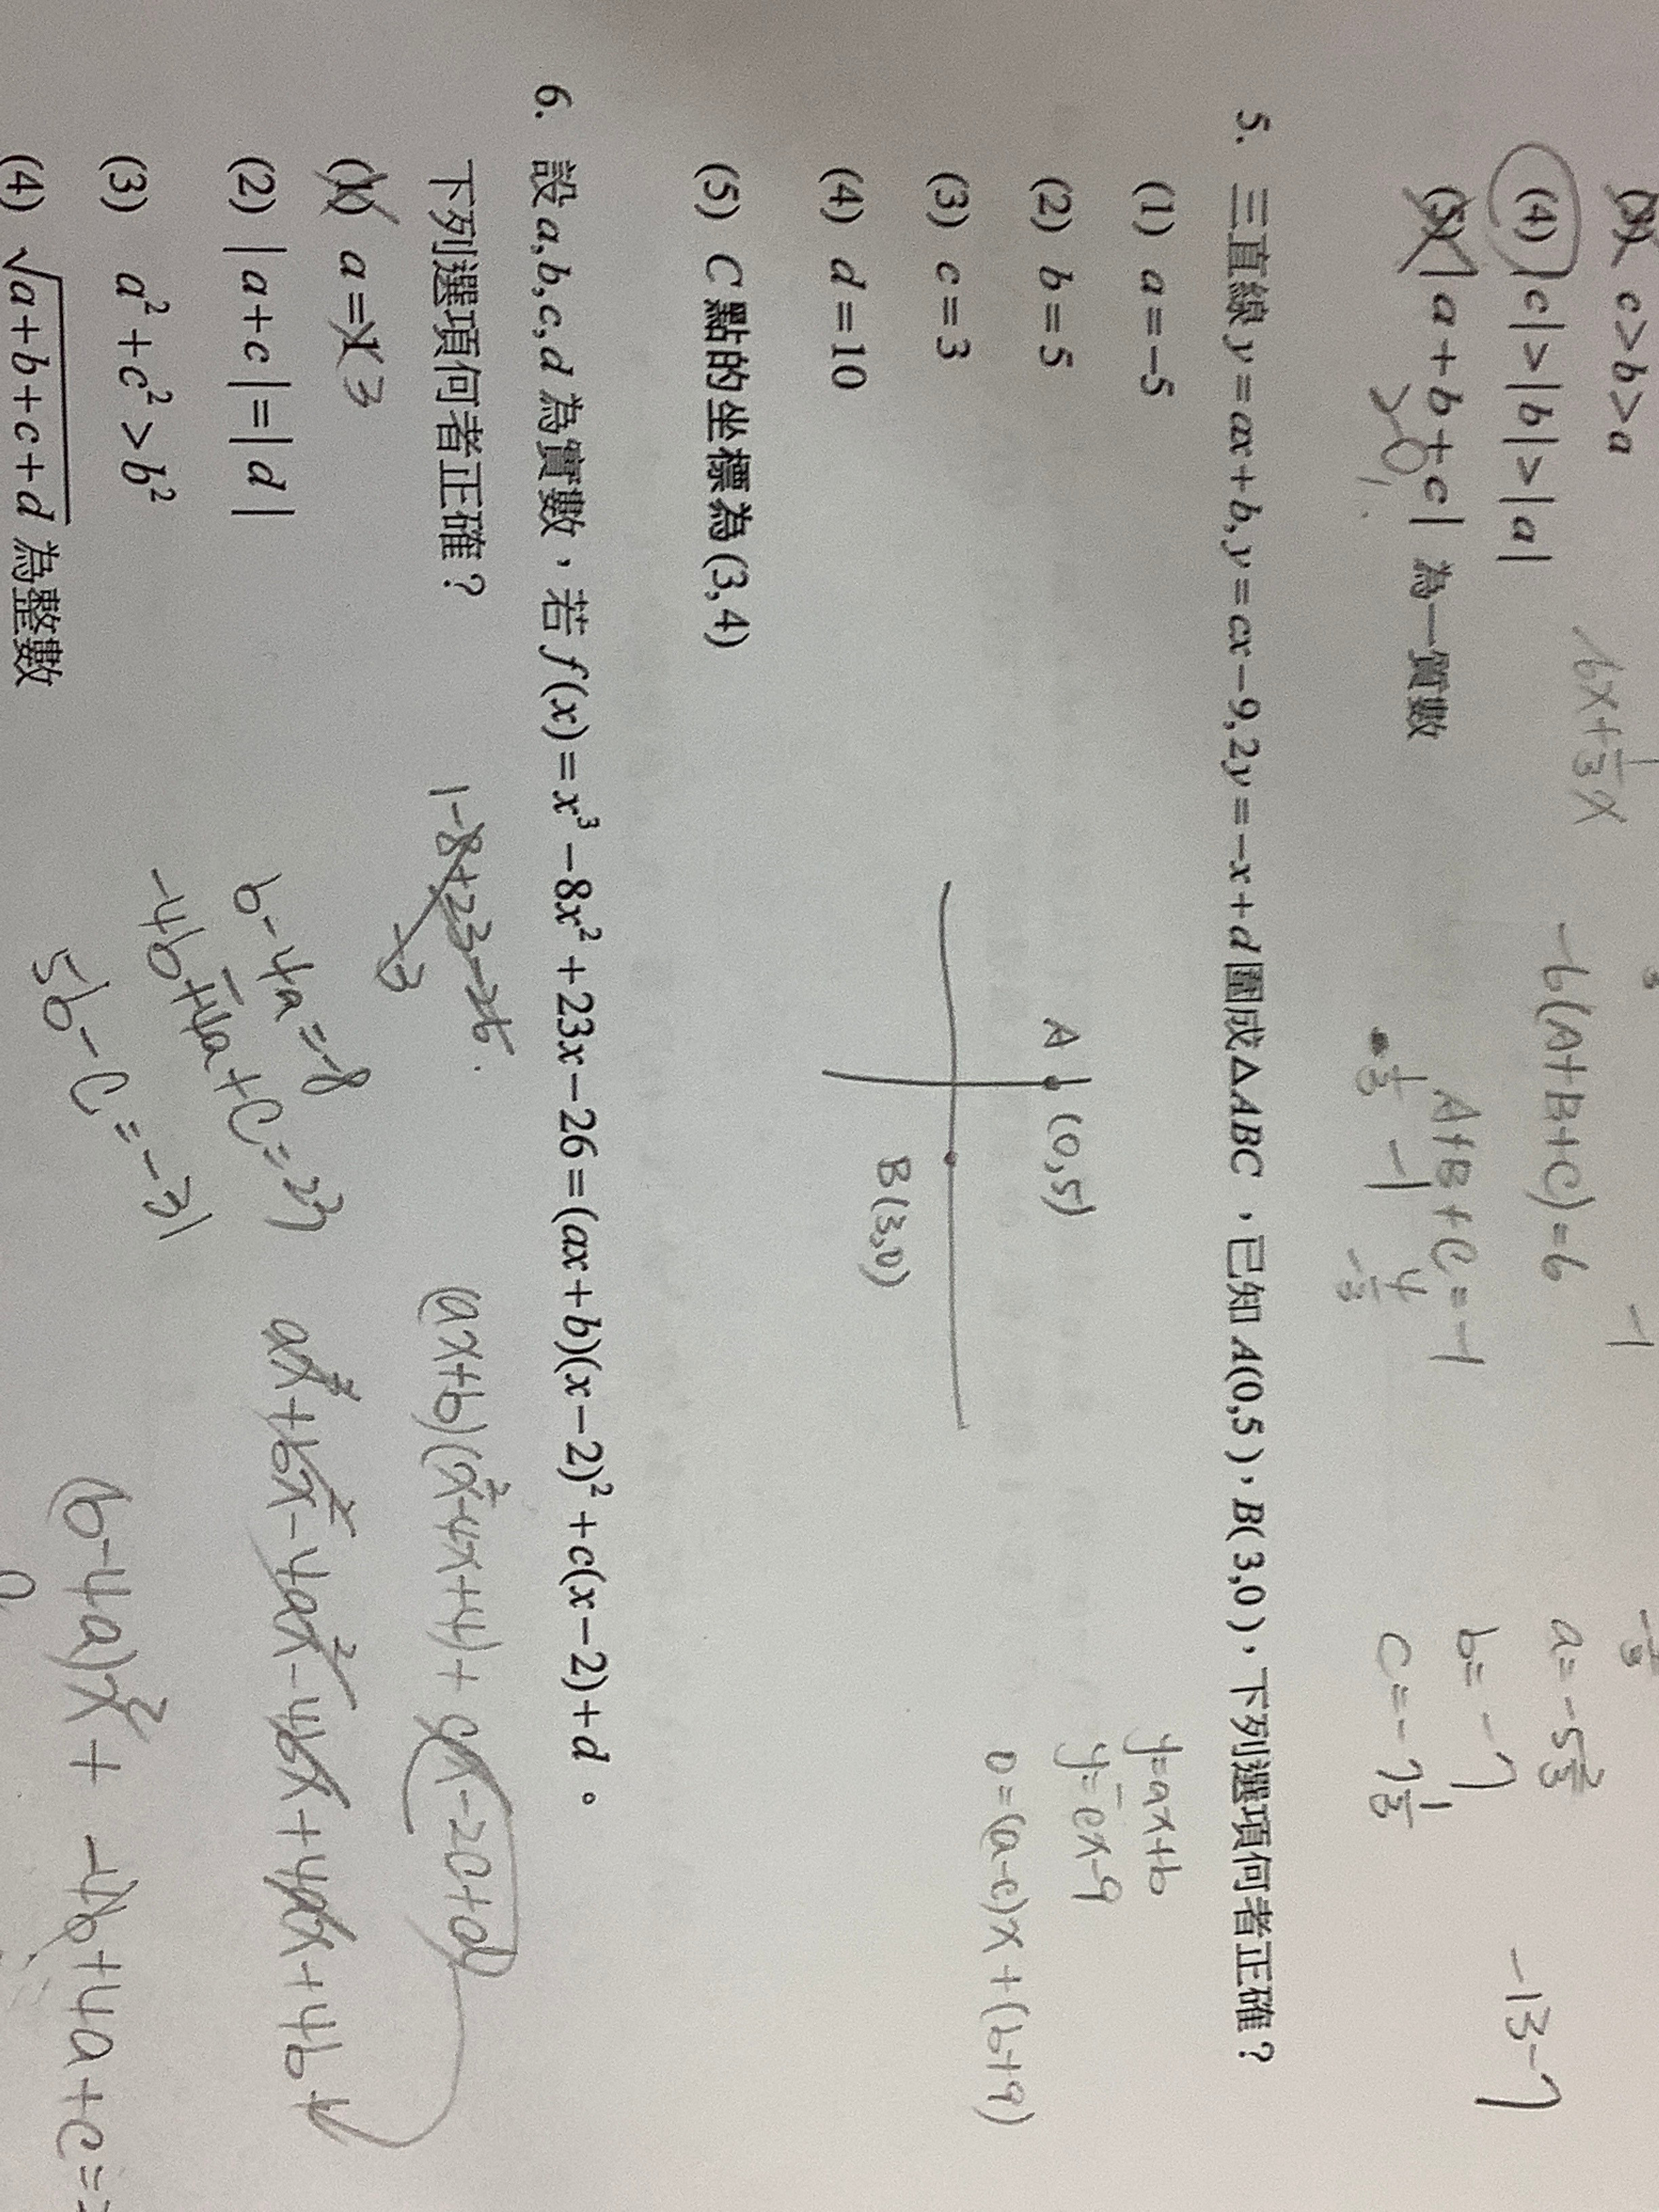 (3) c>b>a
(4) |c|>|b|>|a|
(5) |a+b+c| 為一質數
>0
6x+1/3x
-6(A+B+C)=6
A+B+C=-1
1/3 -1
-1
a=-5 2/3
b=-7
c=-7 1/3
-13-7
5. 三直線 y=ax+b, y=cx-9, 2y=-x+d 圍成△ABC，已知 A(0,5)，B(3,0)，下列選項何者正確？
(1) a=-5
(2) b=5
(3) c=3
(4) d=10
(5) C 點的坐標為(3,4)
A (0,5)
B(3,0)
y=ax+b
y=cx-9
0=(a-c)x+(b+9)
6. 設a,b,c,d 為實數，若 f(x)=x³-8x²+23x-26=(ax+b)(x-2)²+c(x-2)+d。
下列選項何者正確？
(1) a=1 3
(2) |a+c|=|d|
(3) a²+c²>b²
(4) √(a+b+c+d) 為整數
1-8+23-26
-3
b-4a=-8
-4b+4a+c=23
5b-c=-31
(ax+b)(x²-4x+4)+cx-2c+d
ax³+bx²-4ax²-4bx+4ax+4b+
(b-4a)x²+ -4b+4a+c=